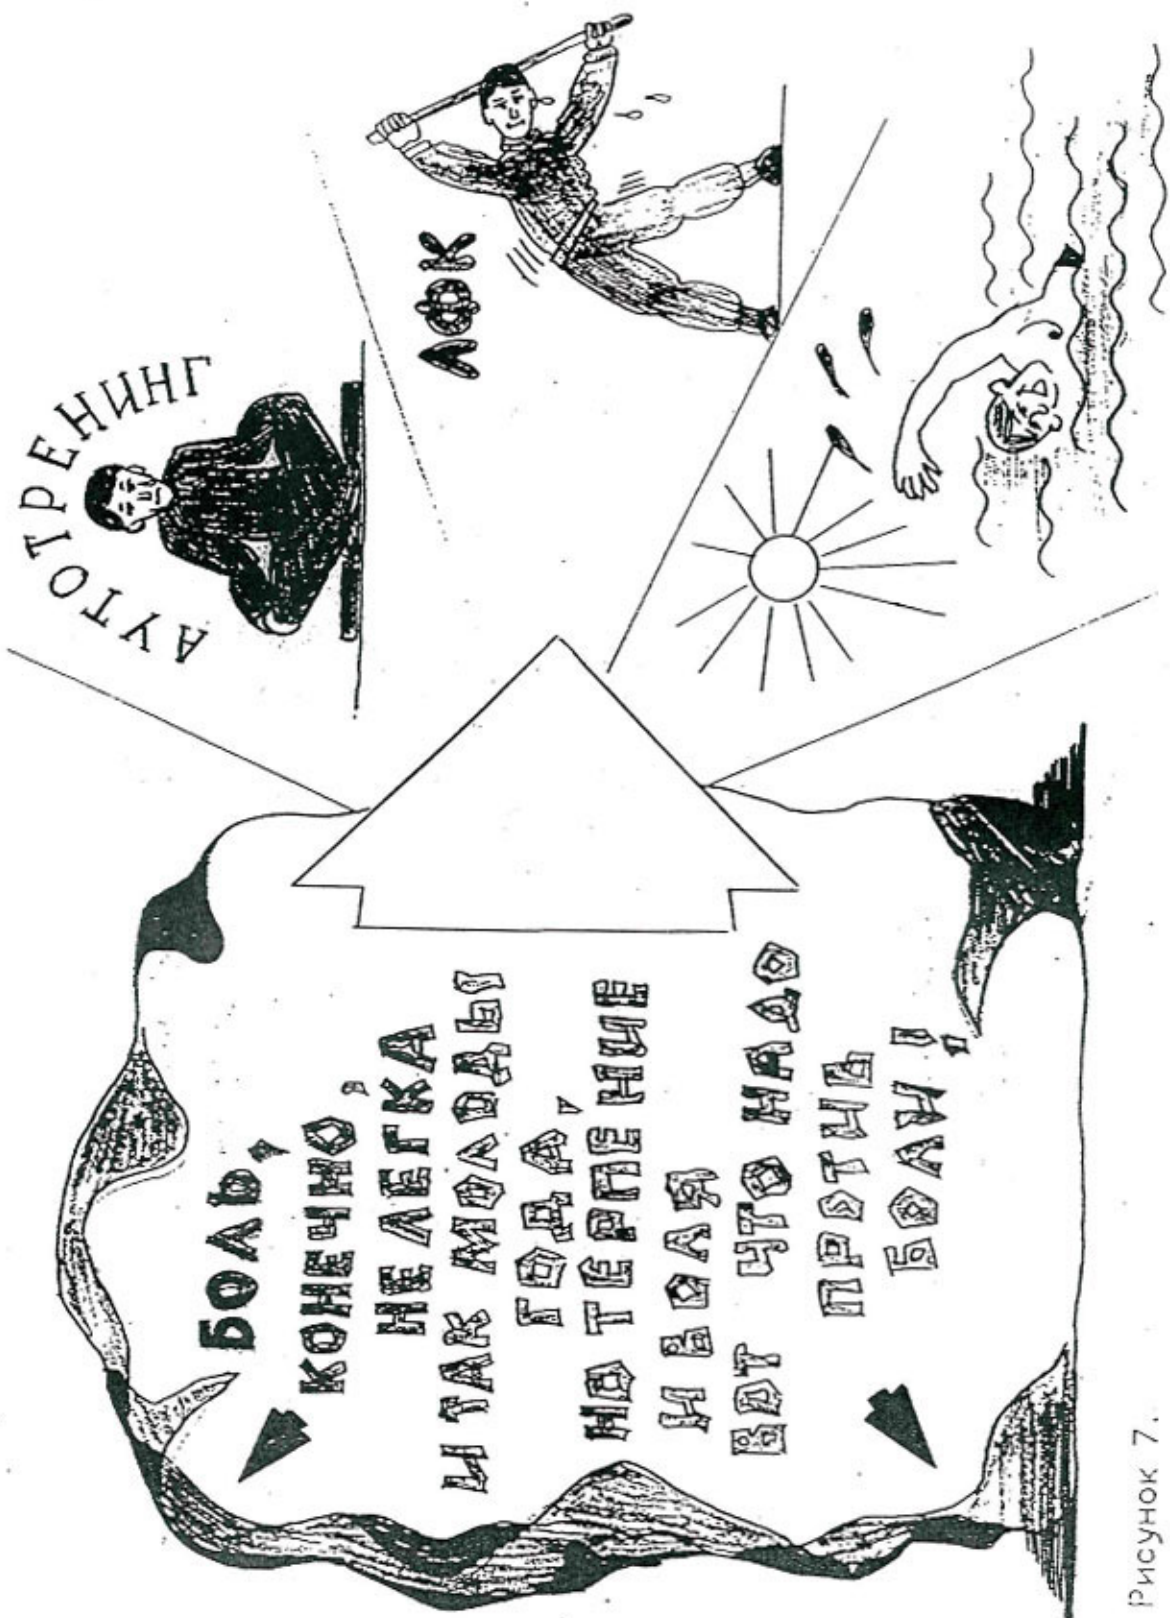 БОЛЬ,
КОНЕЧНО,
НЕ ЛЕГКА
И ТАК МОЛОДЫ
ГОДА,
НО ТЕРПЕНИЕ
И ВОЛЯ
ВОТ ЧТО НАДО
ПРОТИВ
БОЛИ!
АУТОТРЕНИНГ
ЛФК
Рисунок 7.